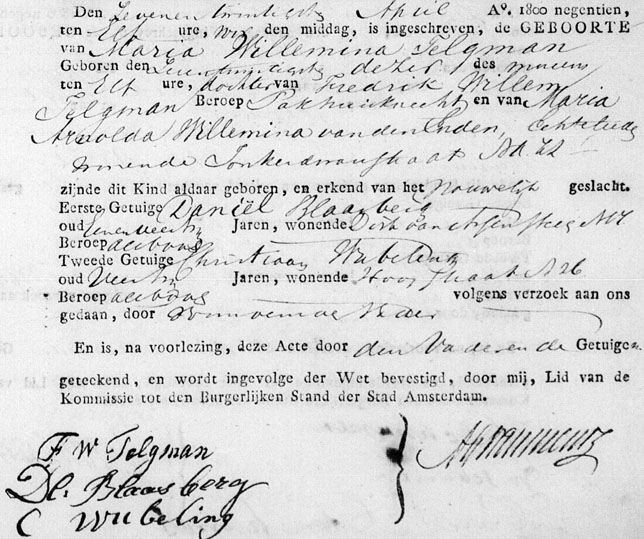 Den Zevenentwintigste April Aº. 1800 negentien,
ten Elf ure, des den middag, is ingeschreven, de GEBOORTE
van Maria Willemina Telgman
Geboren den Zevenentwintigste dezer des morgens
ten Elf ure, dochter van Fredrik Willem
Telgman Beroep Pakhuisknecht en van Maria
Arnolda Willemina van den Enden, Echtelieden
wonende Jonkerdwarsstraat No. 22
zijnde dit Kind aldaar geboren, en erkend van het Vrouwelijk geslacht.
Eerste Getuige Daniël Blaasberg
oud Jaren, wonende
Beroep
Tweede Getuige Christiaan Wubeling
oud Veertig Jaren, wonende Hoogstraat N 26
Beroep volgens verzoek aan ons
gedaan, door Vader
En is, na voorlezing, deze Acte door den Vader en de Getuigen
geteekend, en wordt ingevolge der Wet bevestigd, door mij, Lid van de
Kommissie tot den Burgerlijken Stand der Stad Amsterdam.
F W Telgman
Dl. Blaasberg
C Wubeling